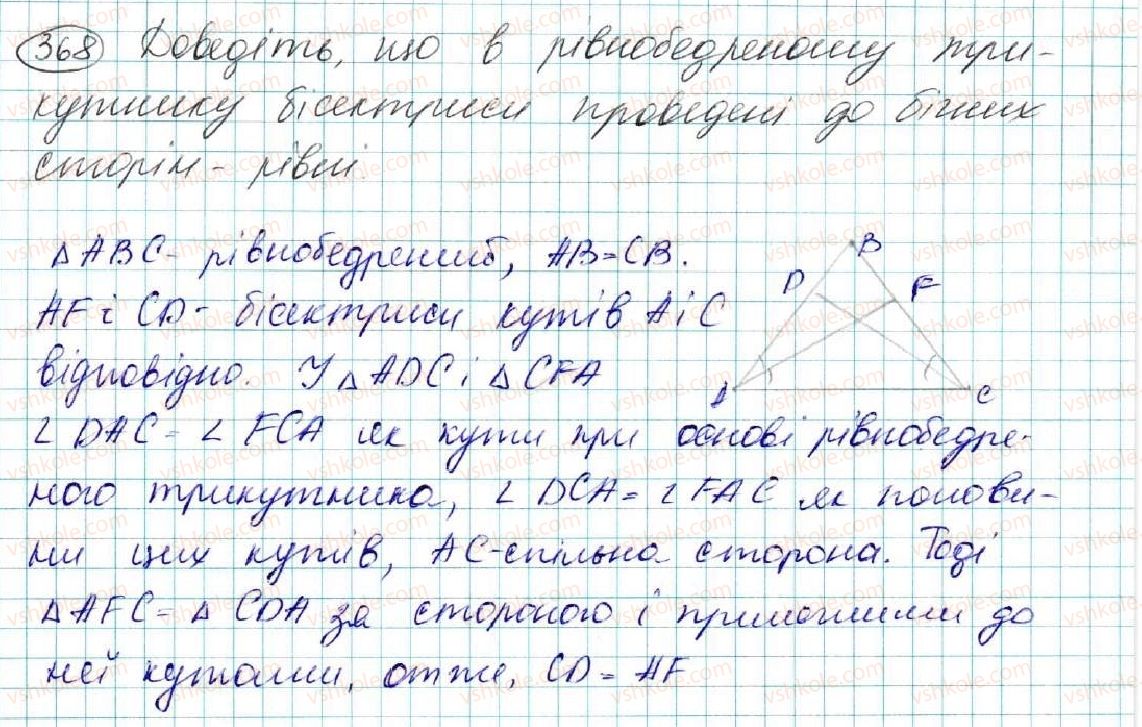 368 Доведіть, що в рівнобедреному три-
кутнику бісектриси проведені до бічних
сторін - рівні
△ABC - рівнобедрений, AB=CB.
B
D
F
AF і CD - бісектриси кутів A і C
відповідно. У △ADC і △CFA
A
C
∠DAC = ∠FCA як кути при основі рівнобедре-
ного трикутника, ∠DCA = ∠FAC як полови-
ни цих кутів, AC-спільна сторона. Тоді
△AFC = △CDA за стороною і прилеглими до
неї кутами, отже, CD = AF